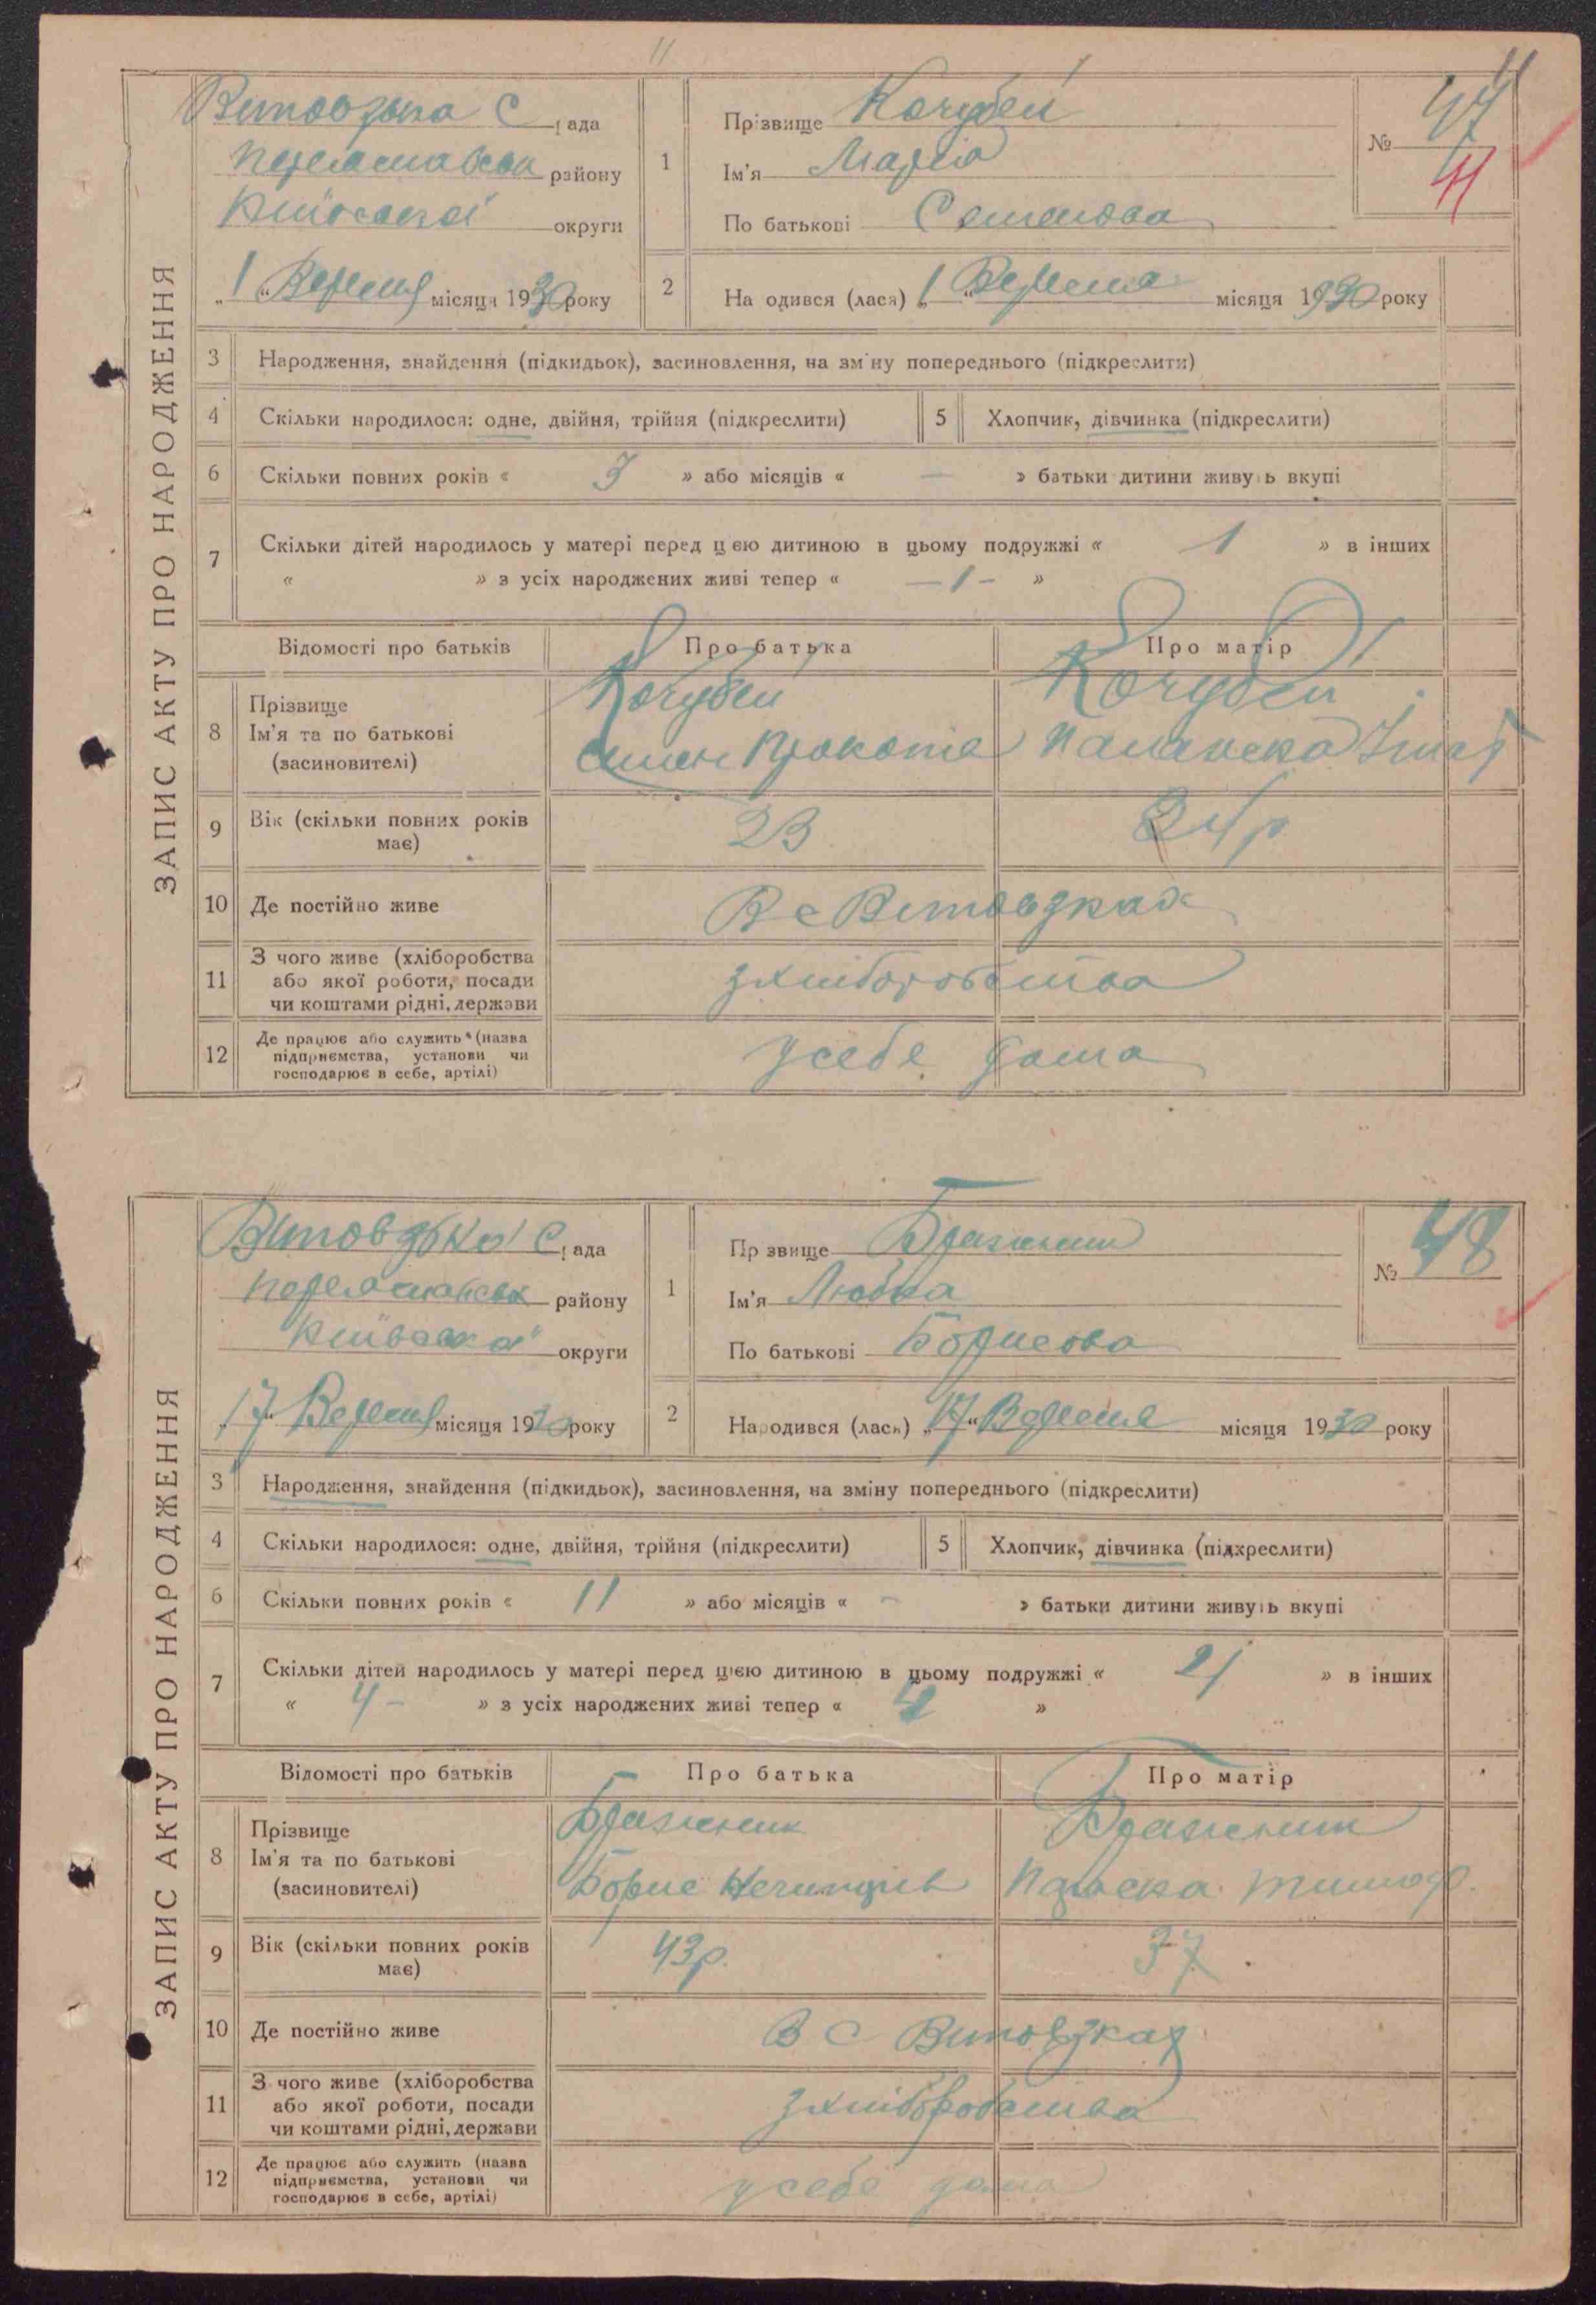 11
Витовзька С рада
Переяславськ району
Київської округи
„1“ Вересня місяця 1930 року
1
Прізвище Кочубей
Ім'я Марія
По батькові Семенова
№ 47
2
На одився (лася) „1“ Вересня місяця 1930 року
ЗАПИС АКТУ ПРО НАРОДЖЕННЯ
3 Народження, знайдення (підкидьок), засиновлення, на зміну попереднього (підкреслити)
4 Скільки народилося: одне, двійня, трійня (підкреслити)
5 Хлопчик, дівчинка (підкреслити)
6 Скільки повних років « 3 » або місяців « — » батьки дитини живуть вкупі
7 Скільки дітей народилось у матері перед цією дитиною в цьому подружжі « 1 » в інших
« » з усіх народжених живі тепер « —1— »
Відомості про батьків Про батька Про матір
8 Прізвище
Ім'я та по батькові
(засиновителі)
Кочубей
Семен Прокопів
Кочубей
9 Вік (скільки повних років
має)
23
24р
10 Де постійно живе
В с Витовзках
11 З чого живе (хліборобства
або якої роботи, посади
чи коштами рідні, держави
зхліборобства
12 Де працює або служить (назва
підприємства, установи чи
господарює в себе, артілі)
усебе дома
Витовзька С рада
Переяславськ району
Київська округи
„17“ Вересня місяця 1930 року
1
Прізвище Бражник
Ім'я Любка
По батькові Борисова
№ 48
2
Народився (лася) „17“ Вересня місяця 1930 року
ЗАПИС АКТУ ПРО НАРОДЖЕННЯ
3 Народження, знайдення (підкидьок), засиновлення, на зміну попереднього (підкреслити)
4 Скільки народилося: одне, двійня, трійня (підкреслити)
5 Хлопчик, дівчинка (підкреслити)
6 Скільки повних років « 11 » або місяців « – » батьки дитини живуть вкупі
7 Скільки дітей народилось у матері перед цією дитиною в цьому подружжі « » в інших
« 4 – » з усіх народжених живі тепер « »
Відомості про батьків Про батька Про матір
8 Прізвище
Ім'я та по батькові
(засиновителі)
Бражник
Борис
Бражник
9 Вік (скільки повних років
має)
43р.
37
10 Де постійно живе
В с Витовзках
11 З чого живе (хліборобства
або якої роботи, посади
чи коштами рідні, держави
зхліборобства
12 Де працює або служить (назва
підприємства, установи чи
господарює в себе, артілі)
усебе дома